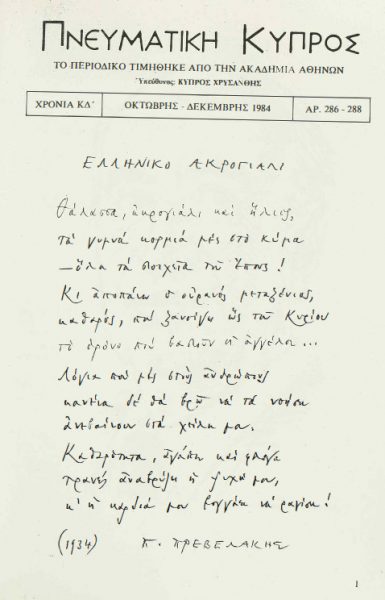 ΠΝΕΥΜΑΤΙΚΗ ΚΥΠΡΟΣ
ΤΟ ΠΕΡΙΟΔΙΚΟ ΤΙΜΗΘΗΚΕ ΑΠΟ ΤΗΝ ΑΚΑΔΗΜΙΑ ΑΘΗΝΩΝ
Ὑπεύθυνος: ΚΥΠΡΟΣ ΧΡΥΣΑΝΘΗΣ
ΧΡΟΝΙΑ ΚΔ΄
ΟΚΤΩΒΡΗΣ - ΔΕΚΕΜΒΡΗΣ 1984
ΑΡ. 286 - 288
ΕΛΛΗΝΙΚΟ ΑΚΡΟΓΙΑΛΙ
Θάλασσα, ἀκρογιάλι καὶ ἥλιος,
τὰ γυμνὰ κορμιὰ μὲς στὸ κύμα
— ὅλα τὰ στοιχεῖα τοῦ ἔπους!
Κι ἀποπάνω ὁ οὐρανὸς μεταξένιος,
καθαρός, ποὺ ξανοίγω ὣς τοῦ Κυρίου
τὸ θρόνο ποὺ βαστοῦν οἱ ἀγγέλοι...
Λόγια ποὺ μὲς στοὺς ἀνθρώπους
κανένα δὲ θὰ βρῶ νὰ τὰ νοήση
ἀνεβαίνουν στὰ χείλα μου.
Καθαρότητα, ἀγάπη καὶ φλόγα
ἀναβρύζει ἡ ψυχή μου,
κ' ἡ καρδιά μου βογγάει νὰ ραγίση!
(1934) Π. ΠΡΕΒΕΛΑΚΗΣ
1